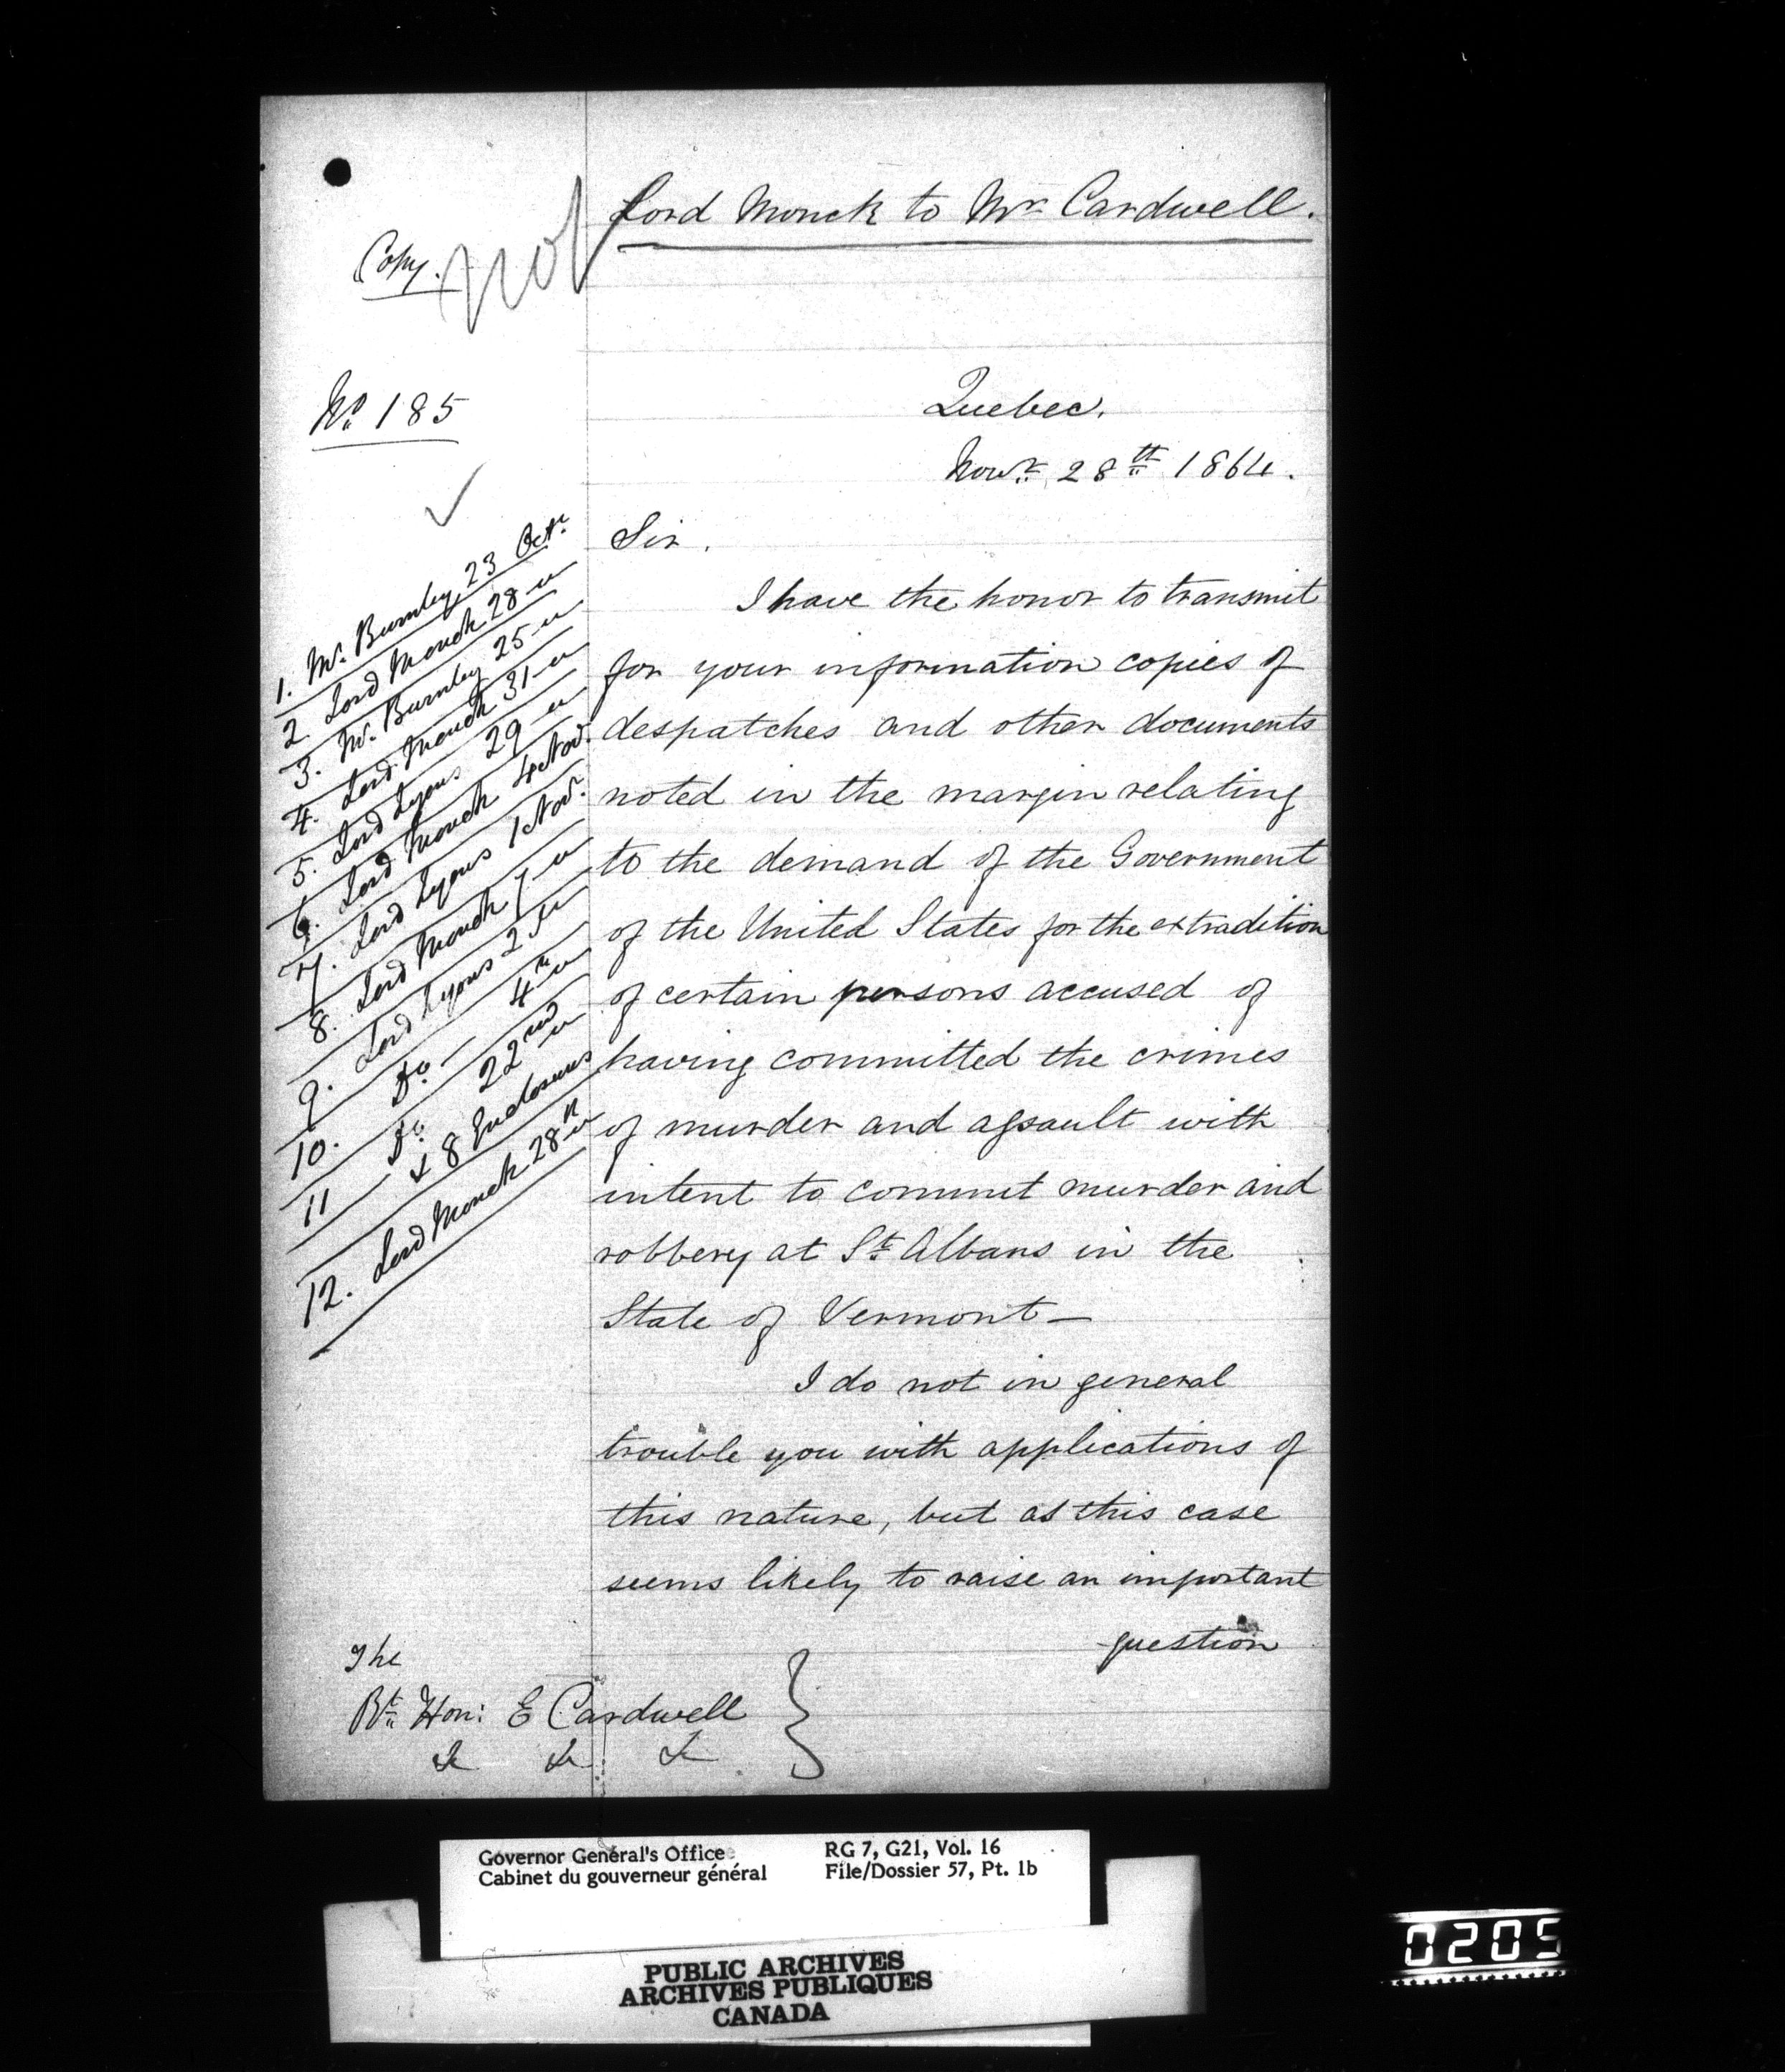 Lord Monck to Mr Cardwell.
Copy.
No 185
Quebec.
Novr 28th 1864.
1. Mr. Burnley 23 Octr.
2. Lord Monck 28 "
3. Mr. Burnley 25 "
4. Lord Monck 31 "
5. Lord Lyons 29 "
6. Lord Monck 4 Nov.
7. Lord Lyons 1 Nov.
8. Lord Monck 7 "
9. Lord Lyons 25 "
10. Do — 4th "
11 Do 22nd "
& 8 Enclosures
12. Lord Monck 28th "
Sir.
I have the honor to transmit
for your information copies of
despatches and other documents
noted in the margin relating
to the demand of the Government
of the United States for the extradition
of certain persons accused of
having committed the crimes
of murder and assault with
intent to commit murder and
robbery at St Albans in the
State of Vermont —
I do not in general
trouble you with applications of
this nature, but as this case
seems likely to raise an important
question
The
Rt. Hon: E Cardwell
&c &c &c
Governor General's Office
Cabinet du gouverneur général
RG 7, G21, Vol. 16
File/Dossier 57, Pt. 1b
PUBLIC ARCHIVES
ARCHIVES PUBLIQUES
CANADA
0205